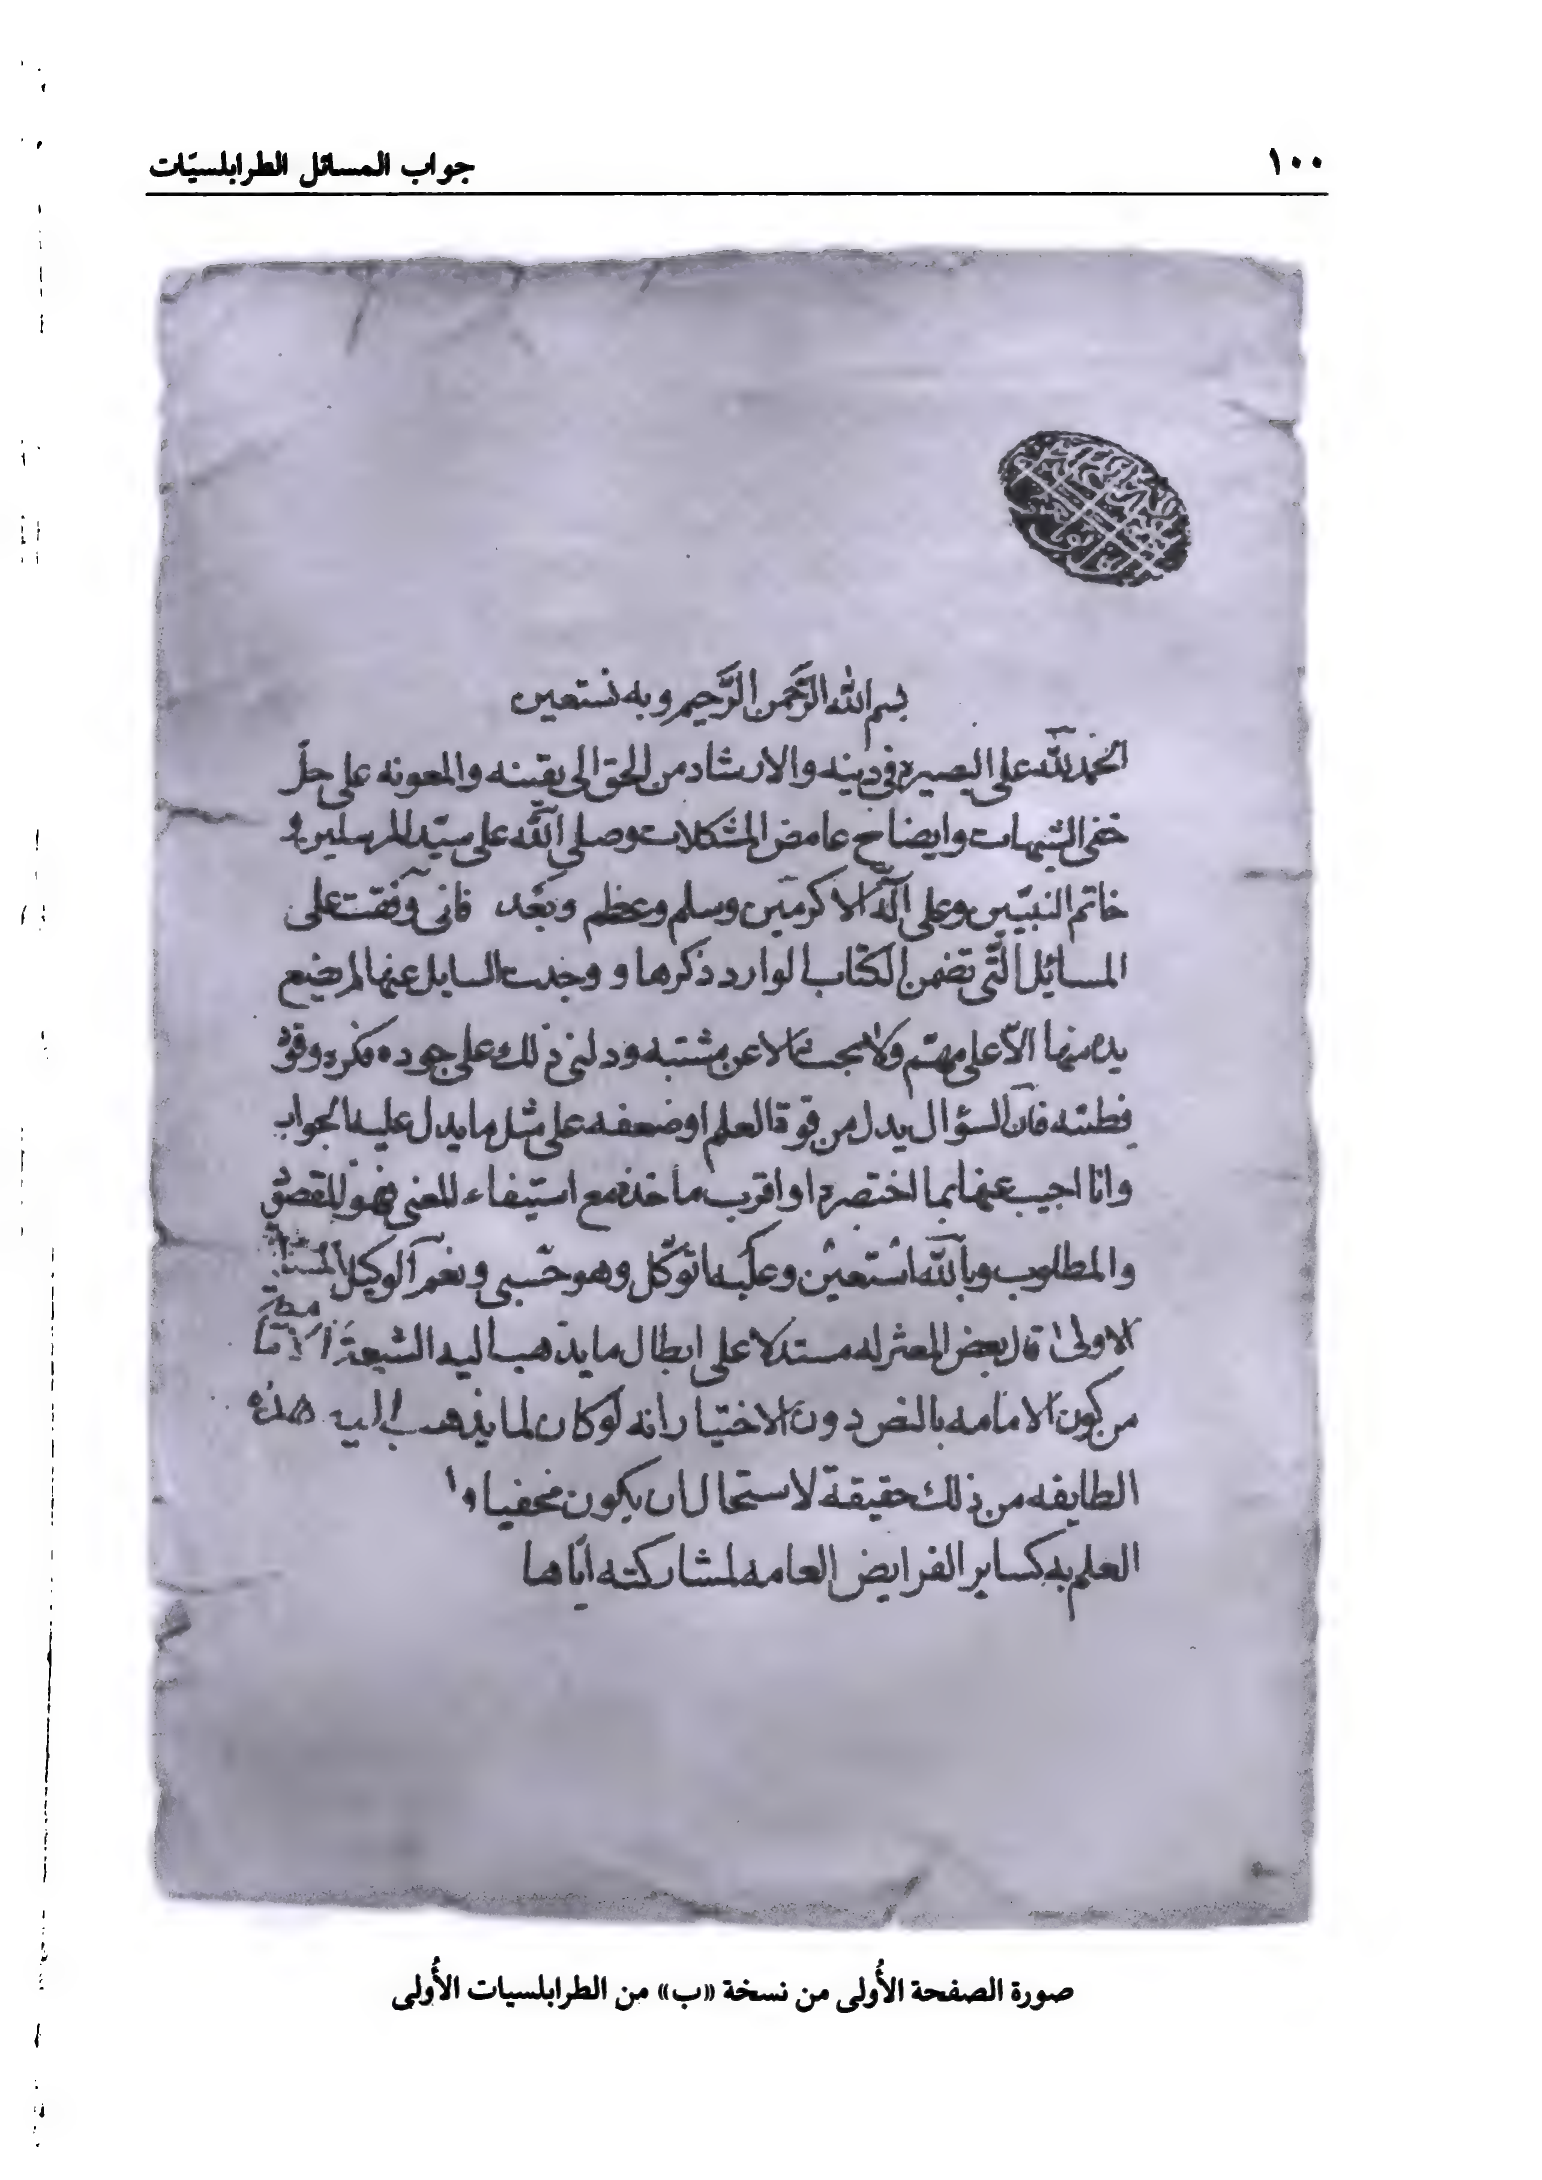 ١٠٠
جواب المسائل الطرابلسيّات
بسم الله الرَّحمن الرَّحيم وبه نستعين
الحمد لله على البصيره فى دينه والارشاد من الحق الى يقينه والمعونه على حلّ
خفى الشبهات وايضاح غامض المشكلات وصلى الله على سيّد المرسلين و
خاتم النبيّين وعلى آله الاكرمين وسلم وعظم وبعد فانى وقفت على
المسائل الّتى تضمن الكتاب الوارد ذكرها و وجدت السايل عنها لم يضع
يده منها الاّ على مهتم ولا بحث الا عن مشتبه ودلنى ذلك على جوده فكره وقوة
فطنته فانّ السؤال يدل من قوة العلم او ضعفه على مثل ما يدل عليه الجواب
وانا اجيب عنها بما اختصره او اقرب ماخذه مع استيفاء للمعنى فهو المقصود
والمطلوب وبالله استعين وعليه اتوكّل وهو حسبى ونعم الوكيل المسئلة
الاولى قال بعض المعتزله مستدلا على ابطال ما يذهب اليه الشيعة الامامية
من كون الامامه بالنص دون الاختيار انه لو كان لما يذهب اليه هذه
الطايفه من ذلك حقيقة لاستحال ان يكون مخفيا و
العلم به كساير الفرايض العامه لمشاركته ايّاها
صورة الصفحة الأُولى من نسخة «ب» من الطرابلسيات الأُولى